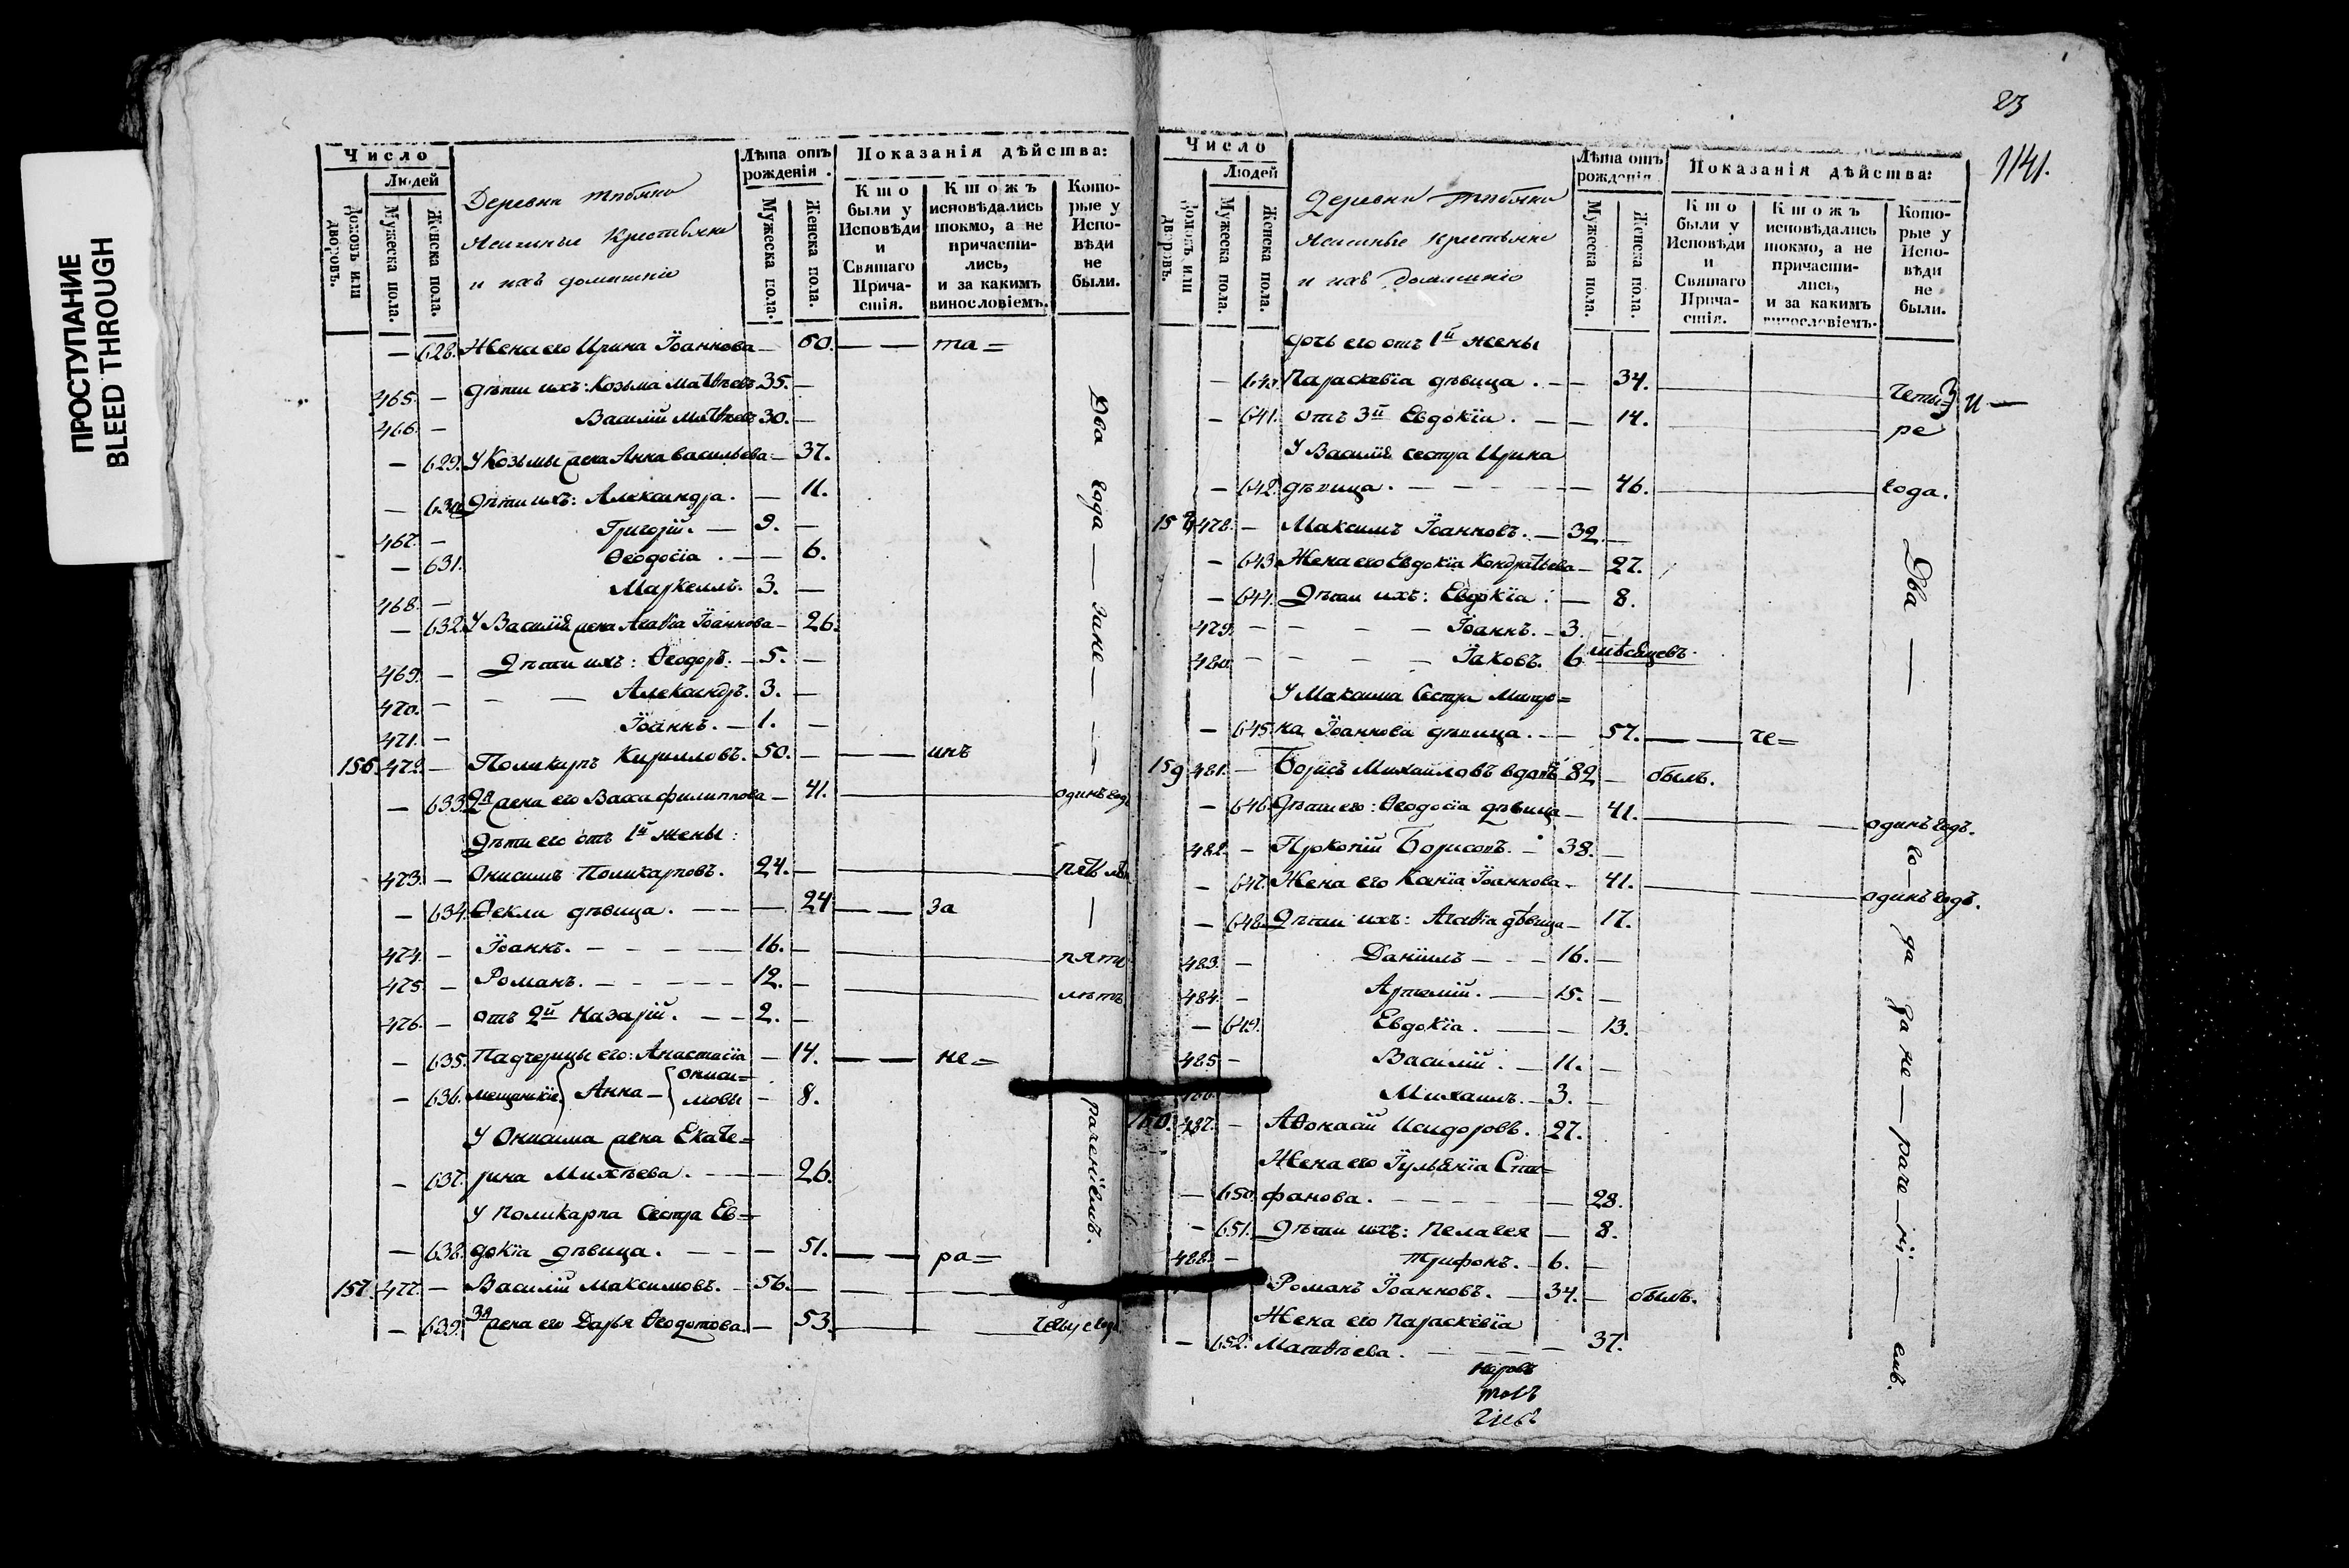 ПРОСТУПАНИЕ
BLEED THROUGH
Число
Людей
Домовъ или дворовъ.
Мужеска пола.
Женска пола.
Деревни
Ясашные Крестьяне
и ихъ домашніе
Лѣта отъ рожденія.
Мужеска пола.
Женска пола.
Показанія дѣйства:
Кто были у Исповѣди и Святаго Причастія.
Ктожъ исповѣдались токмо, а не причастились, и за какимъ винословіемъ.
Которые у Исповѣди не были.
— 628. Жена его Ирина Іоаннова — 60. — — та=
465. — Дѣти ихъ: Козьма Матѳѣевъ 35. —
466. — Василій Матѳѣевъ 30. —
— 629. У Козьмы жена Анна Васильева — 37.
— 630. Дѣти ихъ: Александра. — 11.
467. — Григорій. — 9. —
— 631. Ѳеодосіа . — — 6.
468. — Маркеллъ. 3. —
— 632. У Василія жена Агаѳіа Іоаннова — 26.
469. — Дѣти ихъ: Ѳеодоръ. — 5. —
470. — — — Александръ. 3. —
471. — Іоаннъ. — 1. —
Два года — зане — — —
156. 472. — Поликарпъ Кирилловъ. 50. — — — инъ
— 633. 2я жена его Васса Филиппова — 41. — одинъ годъ
Дѣти его отъ 1й жены:
473. — Онисимъ Поликарповъ. 24. — пять лѣтъ
— 634. Ѳекла дѣвица. — — — 24 — — за —
474. — Іоаннъ. — — — — 16. — пять
475. — Романъ. — — — — 12. — лѣтъ
476. — отъ 2й Назарій. — — 2. —
— 635. Падчерицы его: Анастасіа — 14. — — не=
— 636. мещанскіе Анна — Ониси=
мовы — 8.
У Онисима жена Екате=
— 637. рина Михѣева. — — — 26.
У Поликарпа Сестра Ев=
— 638. докіа дѣвица. — — — 51. — — ра=
раченіемъ.
157. 477. — Василій Максимовъ. — 56. —
— 639. 3я жена его Дарья Ѳеодотова. — 53.
23
1141.
Число
Людей
Домовъ или дворовъ.
Мужеска пола.
Женска пола.
Деревни
Ясашные Крестьяне
и ихъ домашніе
Лѣта отъ рожденія.
Мужеска пола.
Женска пола.
Показанія дѣйства:
Кто были у Исповѣди и Святаго Причастія.
Ктожъ исповѣдались токмо, а не причастились, и за какимъ винословіемъ.
Которые у Исповѣди не были.
дочь его отъ 1й жены
— 640. Параскевіа дѣвица . — — 34. четы=
— 641. отъ 3й Евдокіа . — — 14. ре
У Василія сестра Ирина
— 642. дѣвица. — — — — — 46. года.
478. — Максимъ Іоанновъ. — 32 —
— 643. Жена его Евдокіа Кондратьева — 27.
— 644. Дѣти ихъ: Евдокіа . — 8.
479. — — — — Іоаннъ. — 3. —
480. — — — — Іаковъ. 6 мѣсяцевъ.
У Максима Сестра Матро=
— 645. на Іоаннова дѣвица. — — 57. — — че=
159 481. — Борисъ Михайловъ вдовъ 82 — былъ.
— 646. Дѣти его: Ѳеодосіа дѣвица — 41. — одинъ годъ.
482. — Прокопій Борисовъ. — 38. —
— 647. Жена его Ксеніа Іоаннова — 41. — одинъ годъ.
— 648. Дѣти ихъ: Агаѳіа дѣвица — 17.
483. — Даніилъ — — — 16. —
484. — Артемій. — 15. —
— 649. Евдокіа . — — 13.
485 — Василій . — 11. —
486. Михаилъ. — 3. —
160. 487. — Аѳонасій Исидоровъ. 27.
Жена его Іульянія Сте=
— 650. фанова. — — — — 28.
— 651. Дѣти ихъ: Пелагея — 8.
488. — Трифонъ. — 6. —
Романъ Іоанновъ. — 34. — былъ.
Жена его Параскевіа
— 652. Матѳѣева. — — — — 37.
Два — го — да за не — раче — ні — емъ.